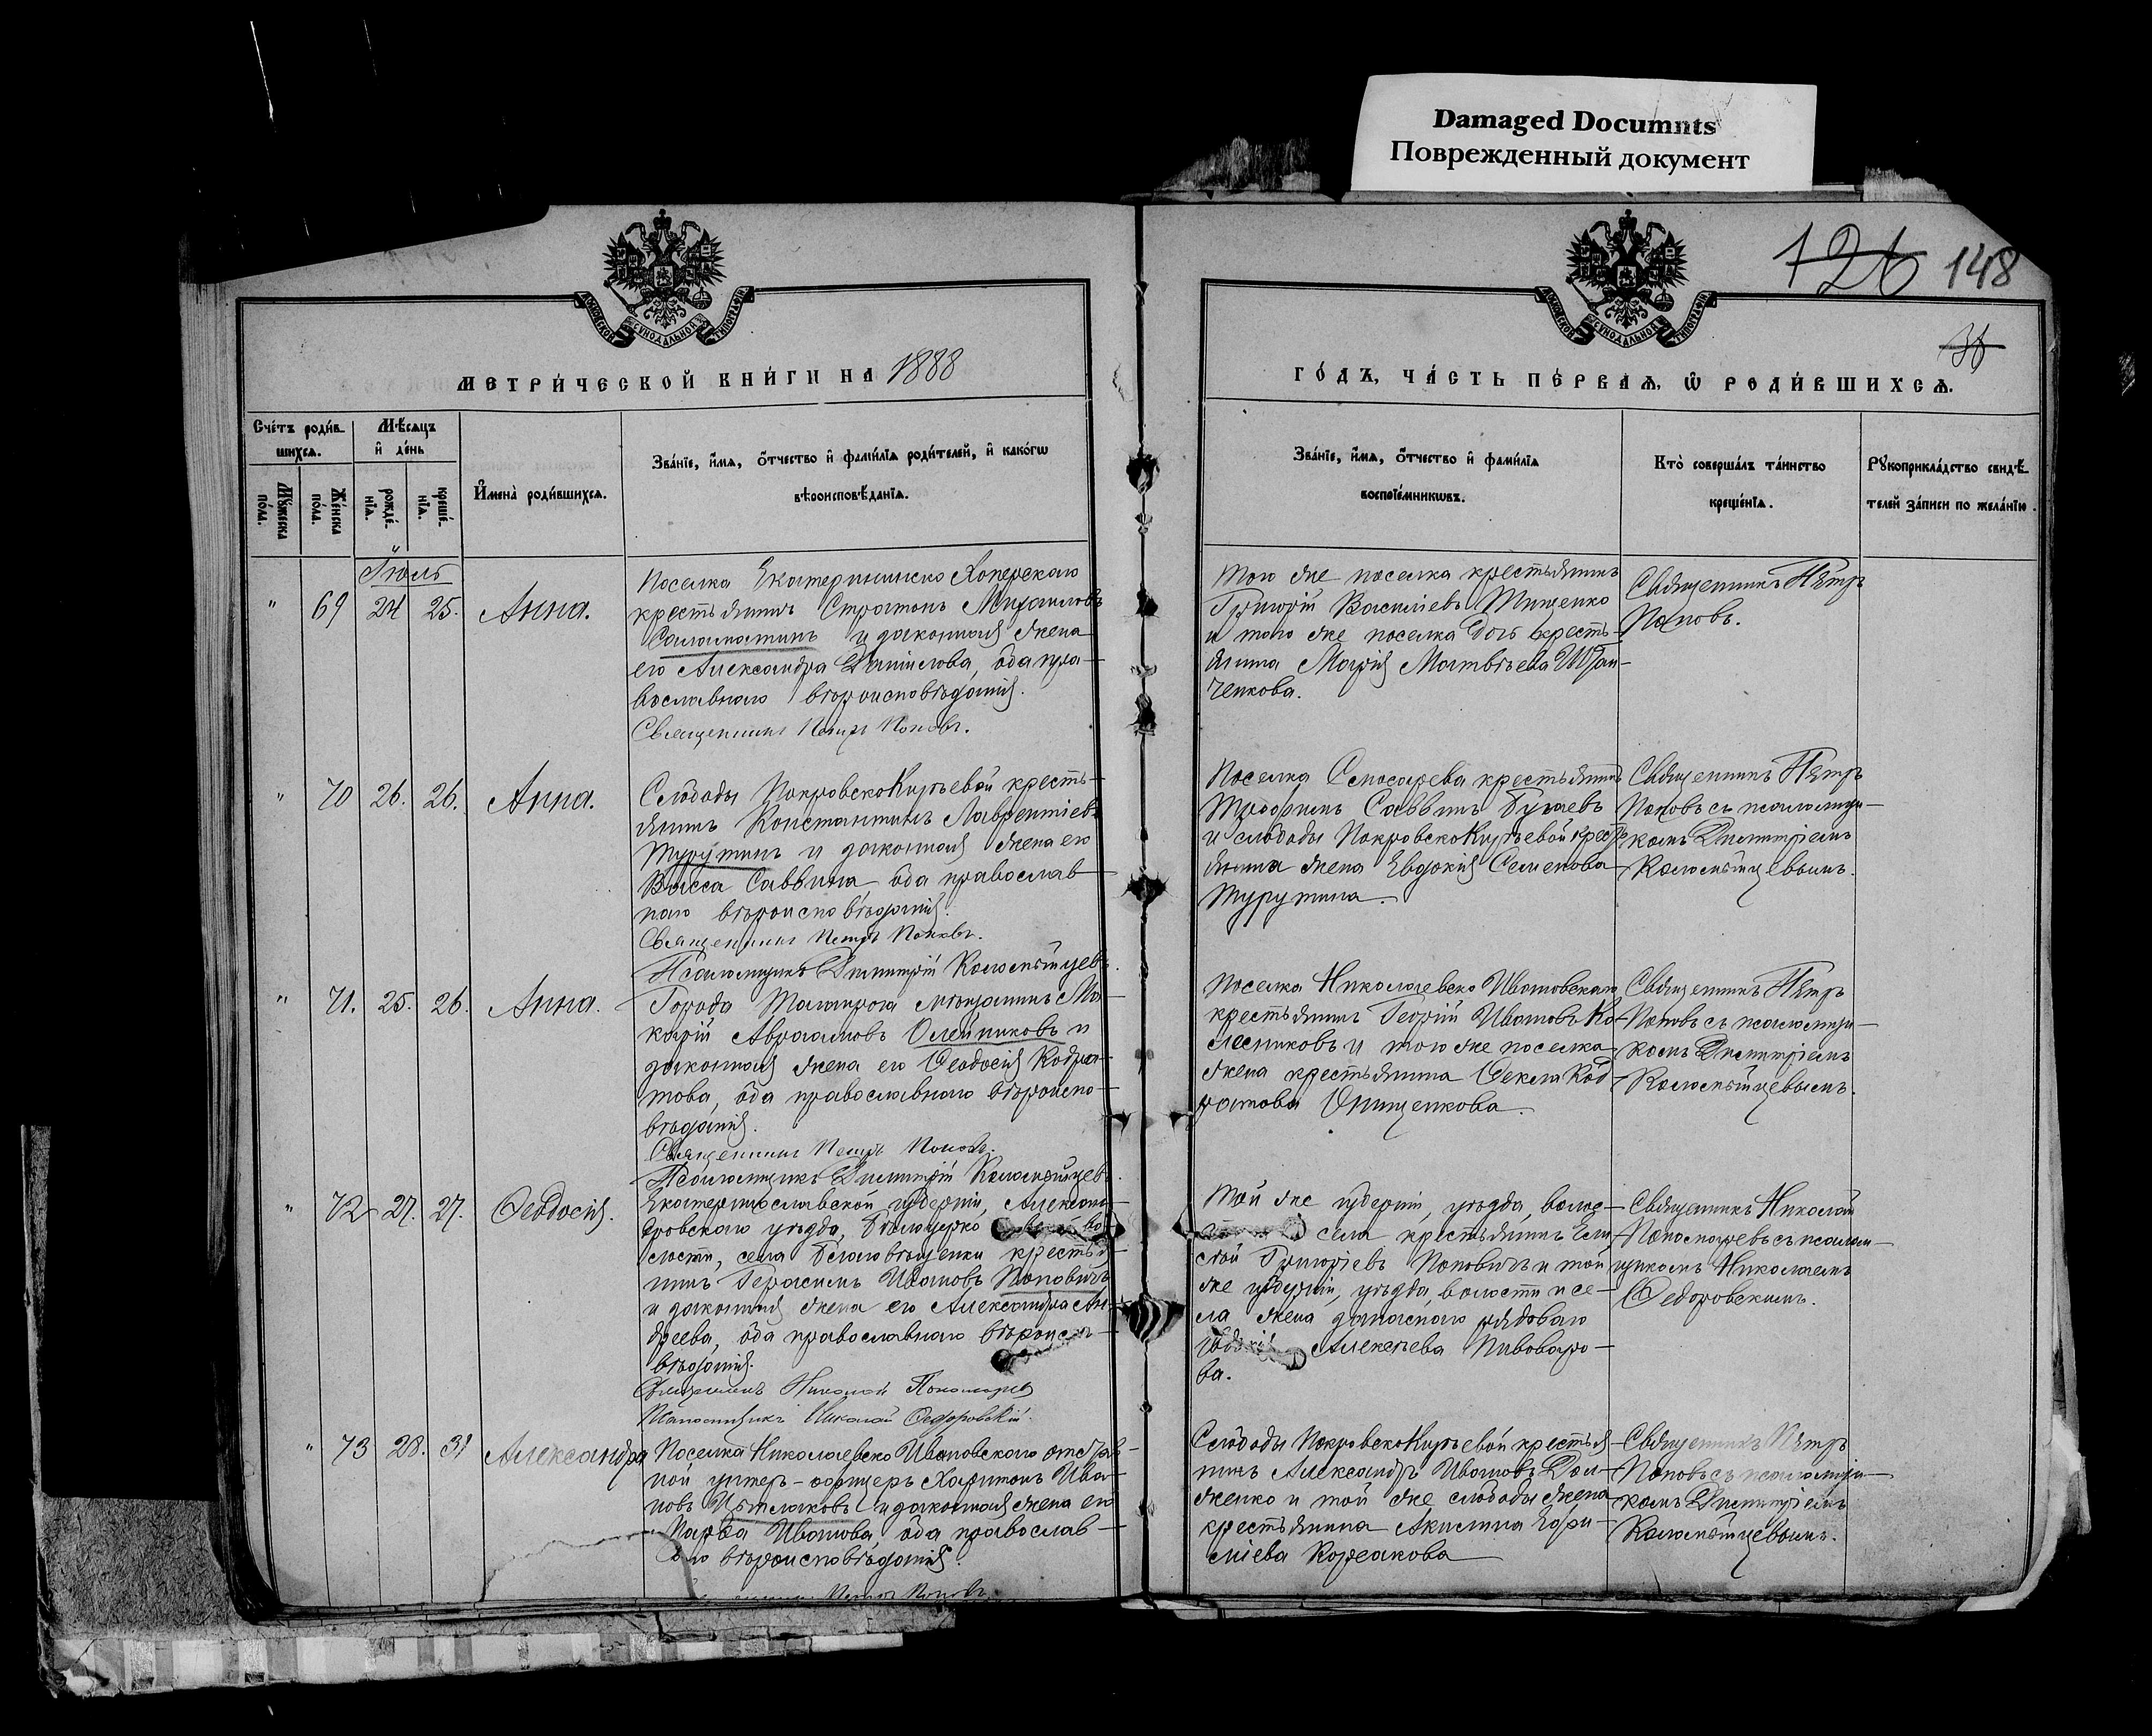 Damaged Documnts
Поврежденный документ
126 148
36
МОСКОВСКОЙ СѴНОДАЛЬНОЙ ТИПОГРАФІИ
МОСКОВСКОЙ СѴНОДАЛЬНОЙ ТИПОГРАФІИ
МЕТРИ́ЧЕСКОЙ КНИ́ГИ НА 1888
ГО́ДЪ, ЧА́СТЬ ПЕ́РВАѦ, Ѡ҆ РОДИ́ВШИХСѦ.
Сче́тъ роди́в-
шихсѧ.
Мѣ́сѧцъ
и҆ де́нь
Мꙋ́жеска по́ла.
Же́нска по́ла.
рожде́-
нїѧ.
креще́-
нїѧ.
И҆мена̀ роди́вшихсѧ.
Зва́нїе, и҆́мѧ, ѻ҆́тчество и҆ фами́лїѧ роди́телей, и҆ како́гѡ
вѣроисповѣ́данїѧ.
Зва́нїе, и҆́мѧ, ѻ҆́тчество и҆ фами́лїѧ
воспрїе́мникѡвъ.
Кто̀ соверша́лъ та́инство
креще́нїѧ.
Рꙋкоприкла́дство свидѣ́-
телей за́писи по жела́нїю.
Іюль
" 69 24 25. Анна.
Поселка Екатеринино Хоперскаго
крестьянинъ Стратонъ Михаиловъ
Саломатинъ и законная жена
его Александра Даніилова, оба пра-
вославнаго вѣроисповѣданія.
Священникъ Петръ Поповъ.
того же поселка крестьянинъ
Григорій Василіевъ Тищенко
и того же поселка дочь кресть-
янина Марія Матвѣева
ченкова.
Священникъ Петръ
Поповъ.
" 70 26. 26. Анна.
Слободы ПокровскоКирѣевой кресть-
янинъ Константинъ Лаврентіевъ
Турутинъ и законная жена его
Васса Саввина, оба православ-
наго вѣроисповѣданія.
Священникъ Петръ Поповъ.
Псаломщикъ Димитрій Коломѣйцевъ.
Поселка крестьянинъ
Саввинъ
и слободы ПокровскоКирѣевой кресть-
янина жена Евдокія Семенова
Турутина.
Священникъ Петръ
Поповъ съ псаломщи-
комъ Димитріемъ
Коломѣйцевымъ.
" 71. 25. 26. Анна.
Города Таганрога мѣщанинъ Ма-
карій Авраамовъ Олейниковъ и
законная жена его Ѳеодосія Кодра-
това, оба православнаго вѣроиспо-
вѣданія.
Священникъ Петръ Поповъ.
Псаломщикъ Димитрій Коломѣйцевъ.
Поселка Николаевско Ивановскаго
крестьянинъ Георгій Ивановъ Ко-
лесниковъ и того же поселка
жена крестьянина Ѳекла Код-
ратова Онищенкова.
Священникъ Петръ
Поповъ съ псаломщи-
комъ Димитріемъ
Коломѣйцевымъ.
" 72 27. 27. Ѳеодосія.
Екатеринославской губерніи, Алексан-
дровскаго уѣзда, Бѣлоцерко во-
лости, села Благовѣщенки крестья-
нинъ Герасимъ Ивановъ Поповичъ
и законная жена его Александра Ан-
дреева, оба православнаго вѣроиспо-
вѣданія.
Священникъ Николай Пономаревъ
Псаломщикъ Николай Ѳедоровскій.
Той же губерніи, уѣзда, волос-
села крестьянинъ
Григоріевъ Поповичъ и той
же губерніи, уѣзда, волости и се-
ла жена запаснаго рядоваго
Алексѣева Пивоваро-
ва.
Священникъ Николай
Пономаревъ съ псалом-
щикомъ Николаемъ
Ѳедоровскимъ.
" 73 28. 31 Александра
Поселка Николаевско Ивановскаго отстав-
ной унтеръ-офицеръ Харитонъ Ива-
новъ и законная жена его
Марѳа Иванова, оба православ-
наго вѣроисповѣданія.
Петръ Поповъ.
Слободы ПокровскоКирѣевой крестья-
нинъ Александръ Ивановъ Дол-
женко и той же слободы жена
крестьянина Акилина
Корсакова
Священникъ Петръ
Поповъ съ псаломщи-
комъ Димитріемъ
Коломѣйцевымъ.